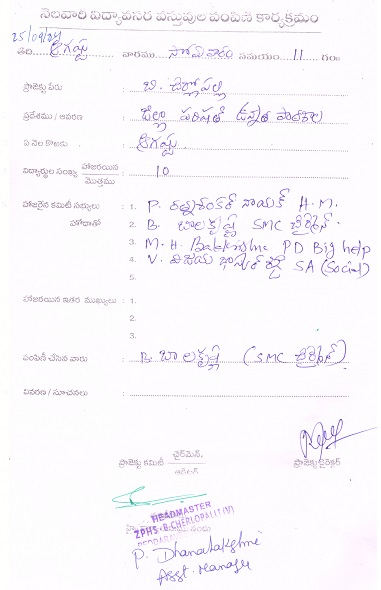 నెలవారి విద్యావసర వస్తువుల పంపిణి కార్యక్రమం
తేది: ఆగష్టు వారము సోమవారం సమయం 11 గం॥
ప్రాజెక్టు పేరు : బి. చెర్లోపల్లి
ప్రదేశము / ఆవరణ : జిల్లా పరిషత్ ఉన్నత పాఠశాల
ఏ నెల కొఱకు : ఆగష్టు
విద్యార్థుల సంఖ్య హాజరయిన / మొత్తము : 10
హాజరైన కమిటీ సభ్యులు : 1. P. నాయక్ H.M.
హోదాతో 2. B. బాలకృష్ణ SMC చైర్మెన్.
3. M. H. PD Big help
4. V. విజయ భాస్కర్ రెడ్డి SA (Social)
5.
హాజరయిన ఇతర ముఖ్యులు : 1.
2.
3.
పంపిణీ చేసిన వారు : B. బాలకృష్ణ (SMC చైర్మెన్)
వివరణ / సూచనలు :
ప్రాజెక్టు కమిటీ చైర్‌మెన్.
ప్రాజెక్టు డైరెక్టర్
HEADMASTER
ZPHS - B.CHERLOPALLI (V)
P. Dhanalakshmi
Asst. Manager